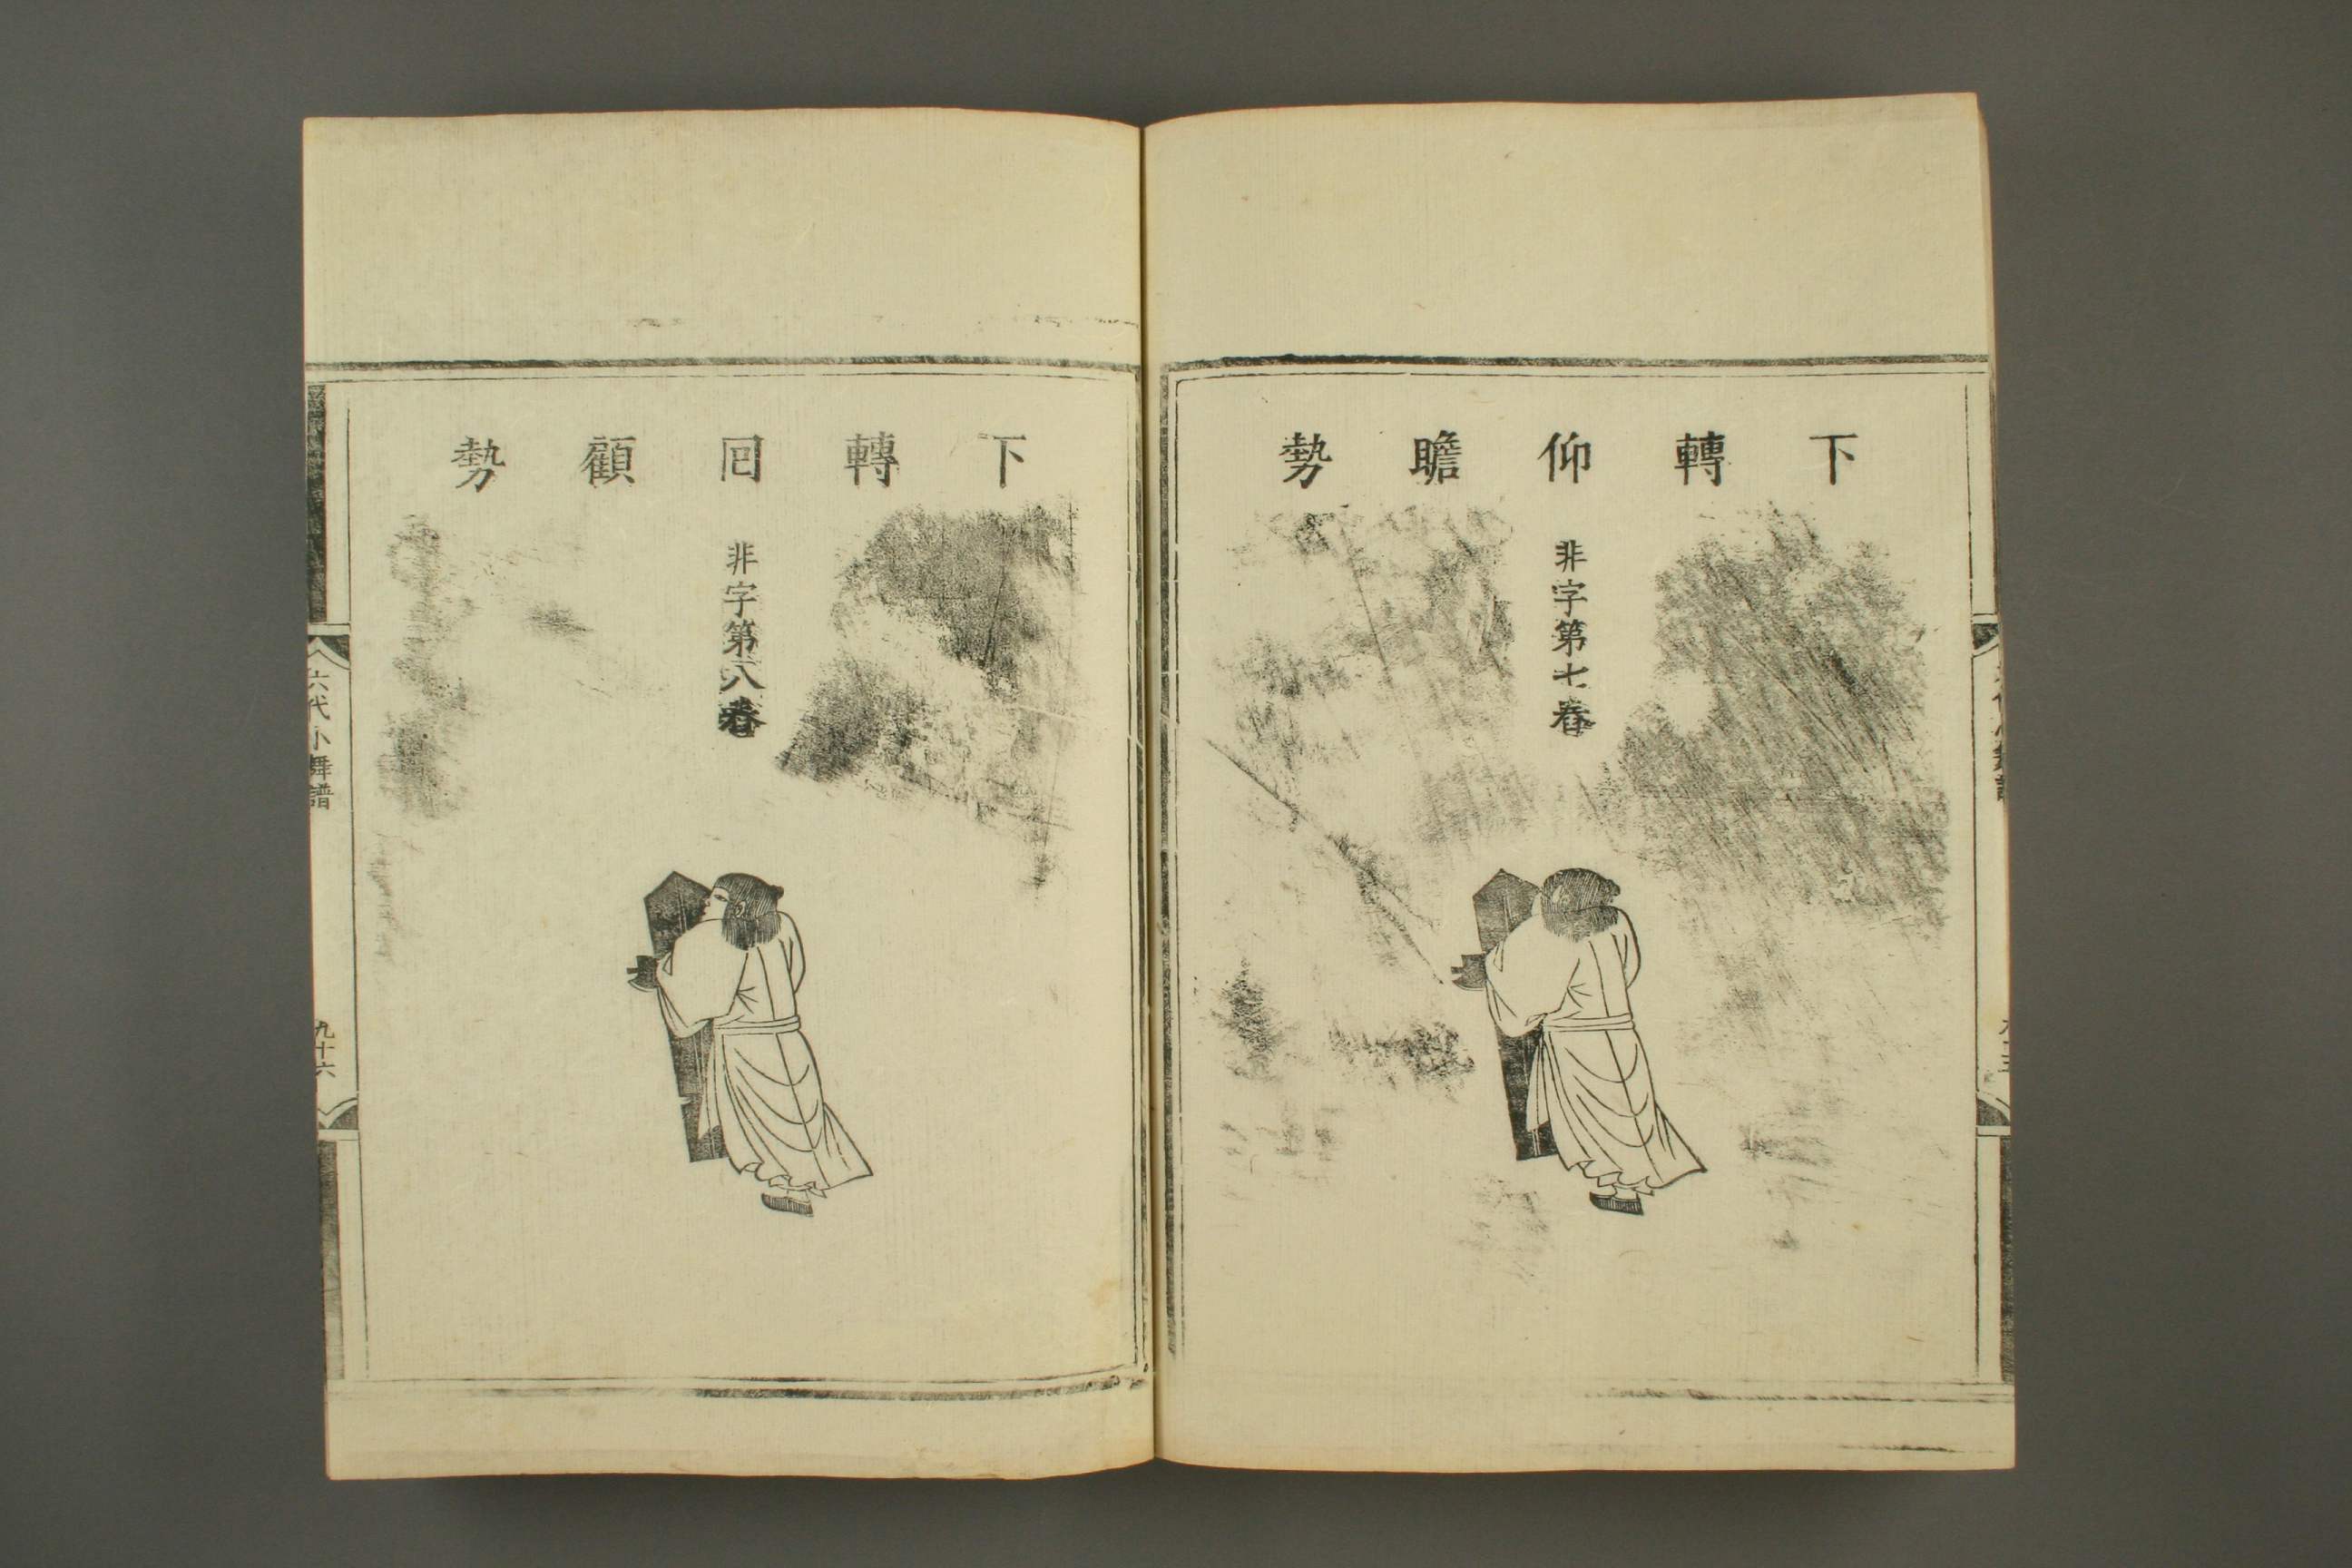 下轉仰瞻勢
非字第七舂
下轉囘顧勢
非字第八舂
六代小舞譜
九十六